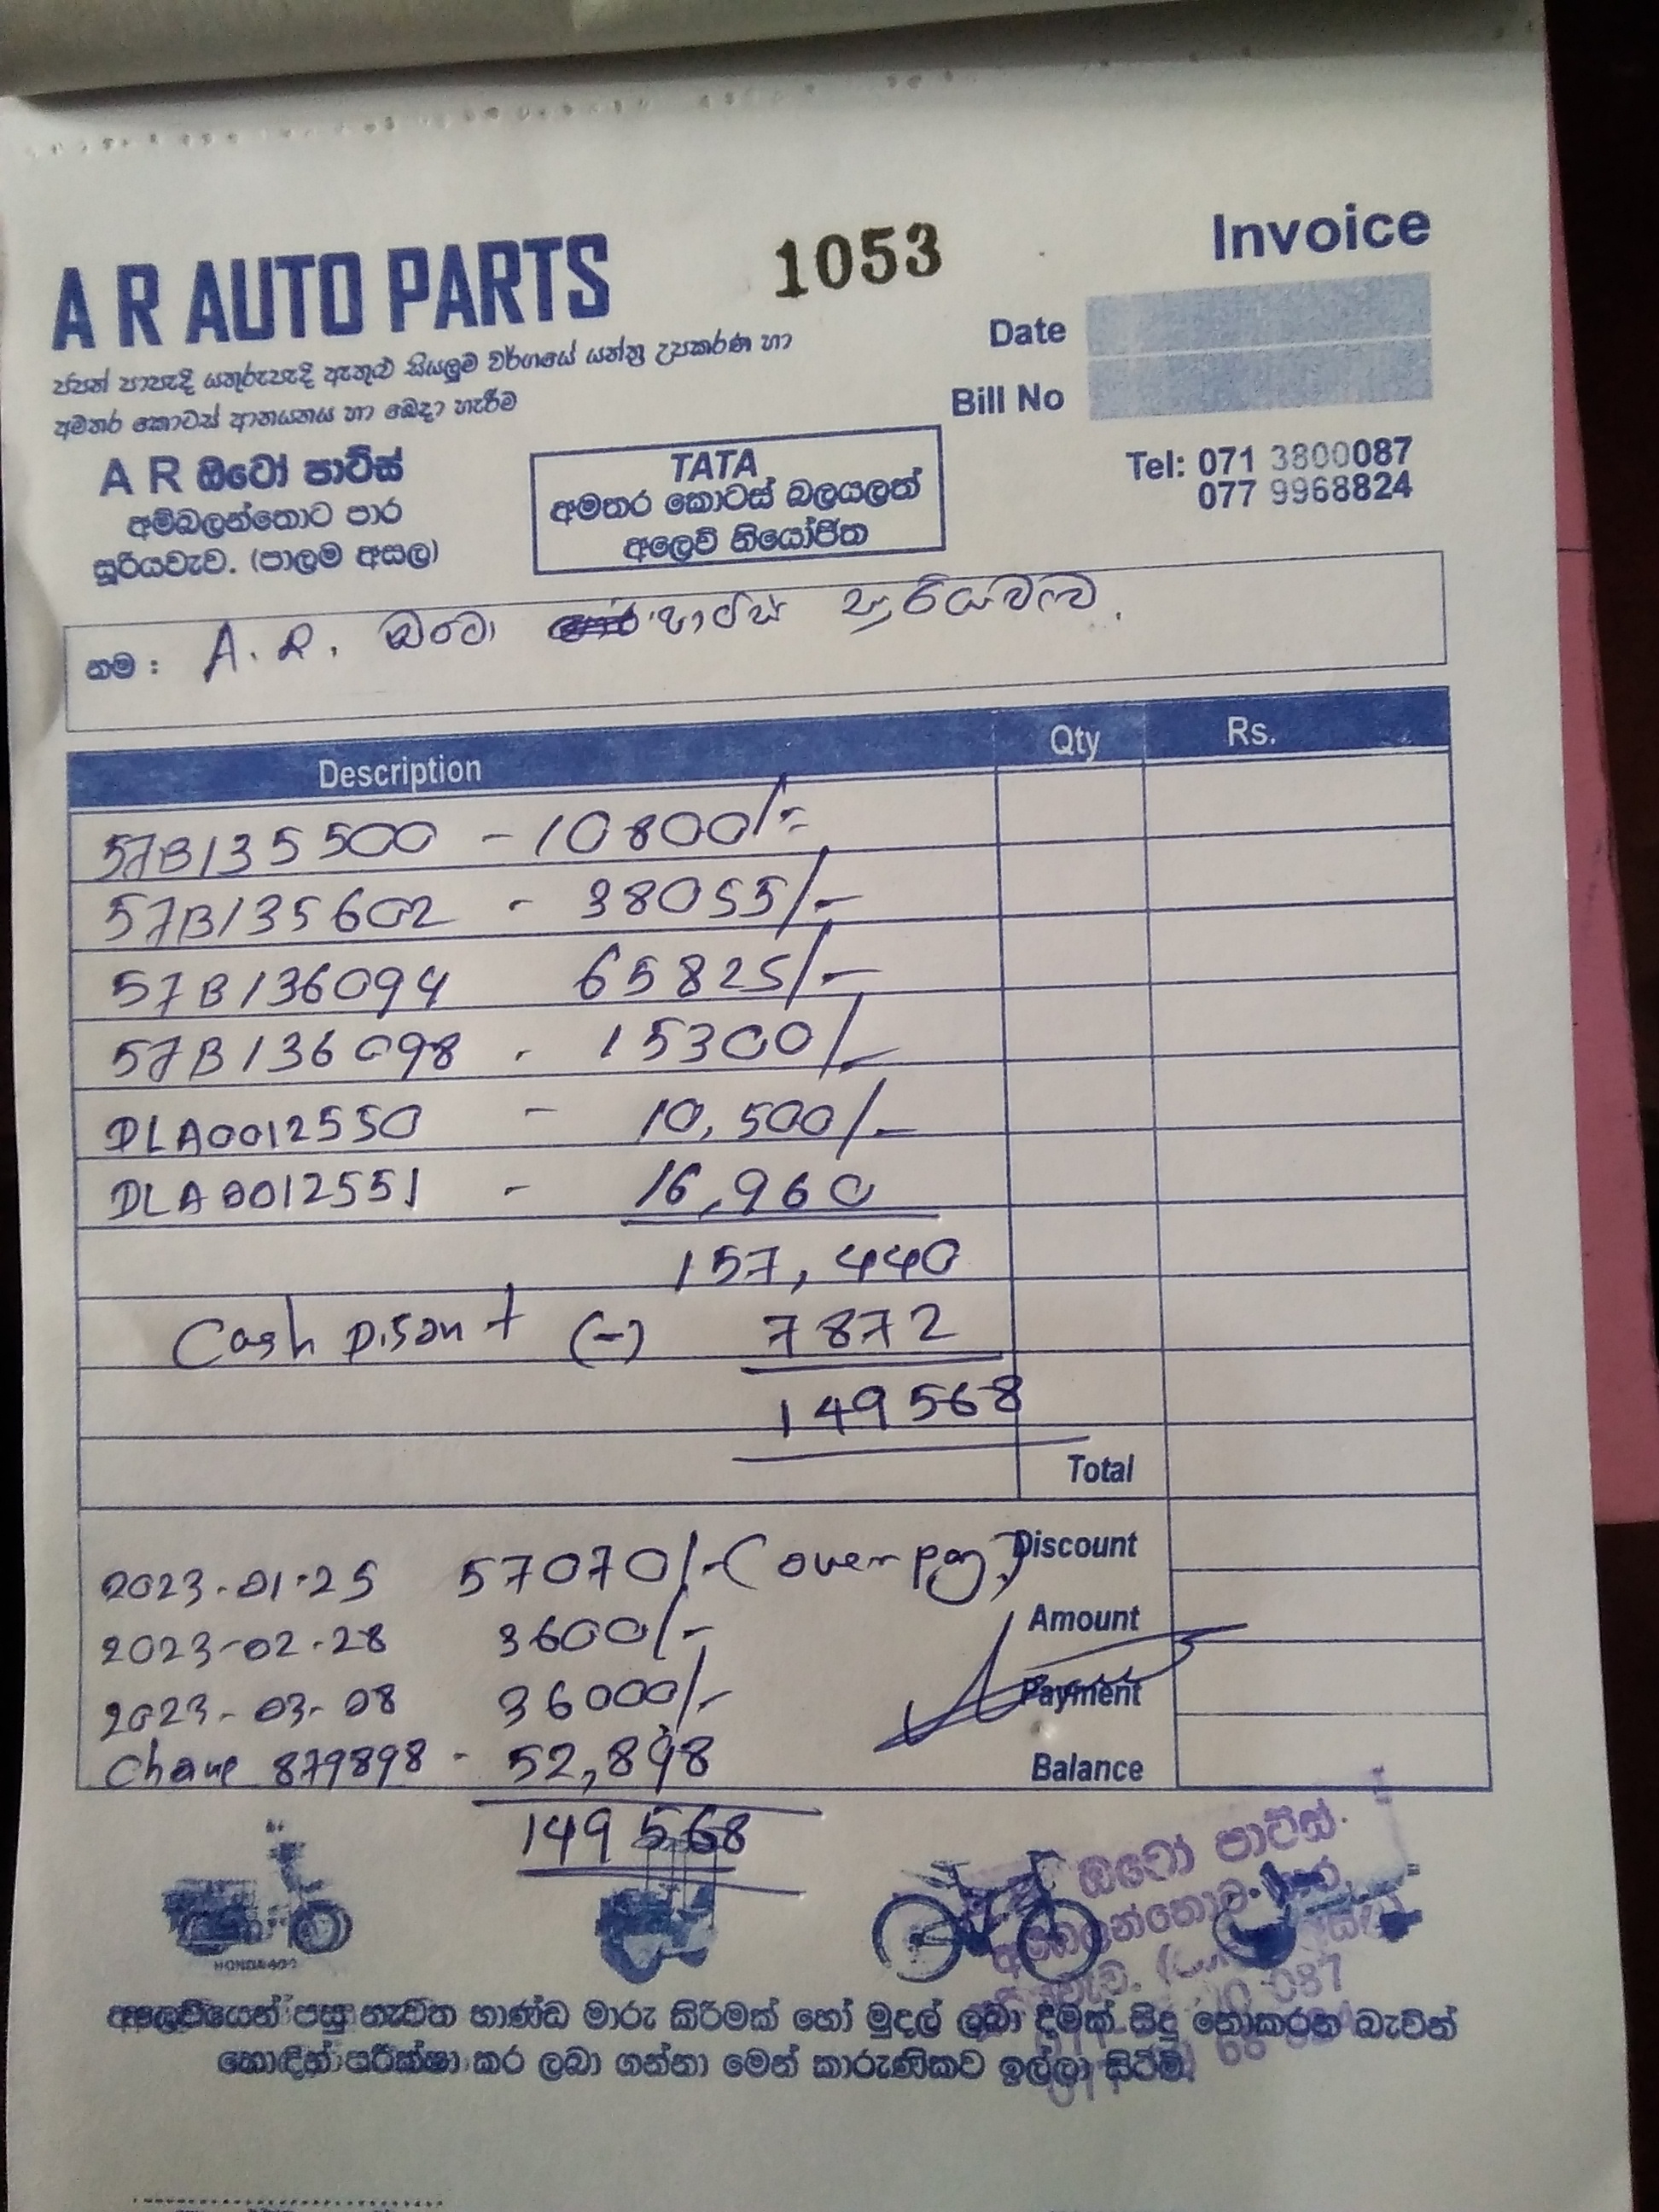 1053
Invoice
A R AUTO PARTS
Date
ජපන් පාපැදි යතුරුපැදි ඇතුළු සියලුම වර්ගයේ යන්ත්‍ර උපකරණ හා
Bill No
අමතර කොටස් ආනයනය හා බෙදා හැරීම
A R ඔටෝ පාට්ස්
අම්බලන්තොට පාර
සූරියවැව. (පාලම අසල)
TATA
අමතර කොටස් බලයලත්
අලෙවි නියෝජිත
Tel: 071 3800087
077 9968824
නම : A. R. ඔටෝ පාට්ස් සූරියවැව.
Description Qty Rs.
57B135500 - 10800/=
57B135602 - 38055/-
57B136094 65825/-
57B136098 - 15300/-
DLA0012550 - 10,500/-
DLA0012551 - 16,960
157,440
Cash Disont (-) 7872
149568
Total
2023-01-25 57070/- (over pay)
Discount
2023-02-28 3600/-
Amount
2023-03-08 36000/-
Payment
879898 - 52,898
Balance
149568
ඔටෝ පාට්ස්.
අලෙවියෙන් පසු නැවත භාණ්ඩ මාරු කිරීමක් හෝ මුදල් ලබා දීමක් සිදු නොකරන බැවින්
හොඳින් පරීක්ෂා කර ලබා ගන්නා මෙන් කාරුණිකව ඉල්ලා සිටිමු.